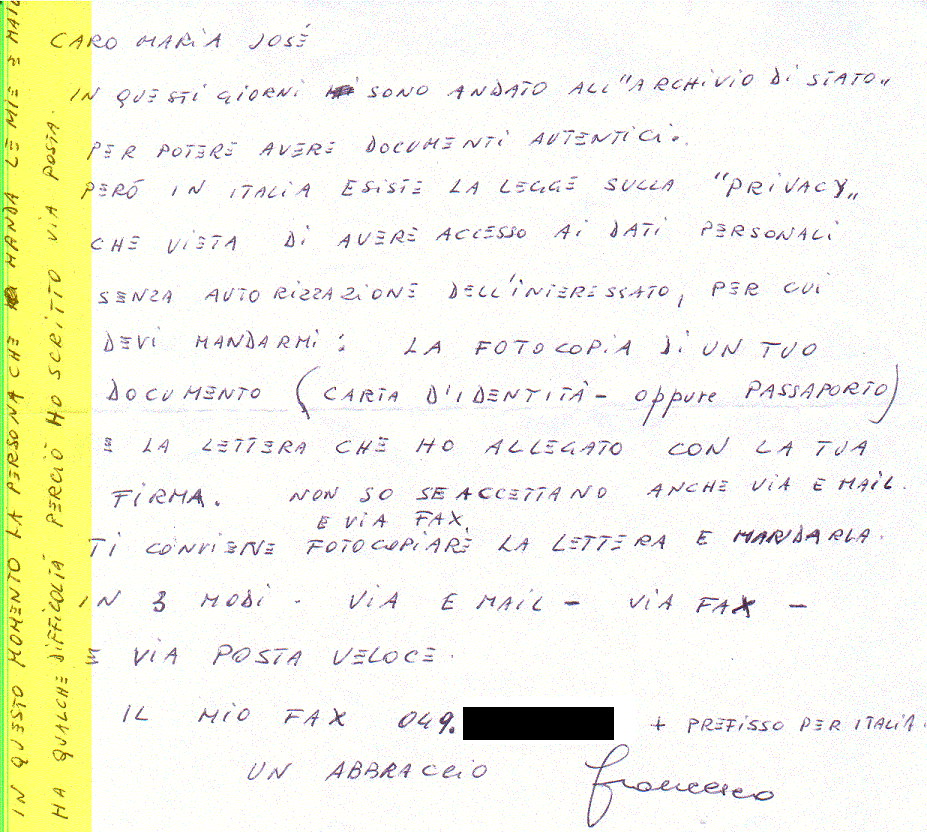 CARO MARIA JOSÉ
IN QUESTI GIORNI SONO ANDATO ALL'"ARCHIVIO DI STATO"
PER POTERE AVERE DOCUMENTI AUTENTICI.
PERÓ IN ITALIA ESISTE LA LEGGE SULLA "PRIVACY"
CHE VIETA DI AVERE ACCESSO AI DATI PERSONALI
SENZA AUTORIZZAZIONE DELL'INTERESSATO, PER CUI
DEVI MANDARMI: LA FOTOCOPIA DI UN TUO
DOCUMENTO (CARTA D'IDENTITÀ - oppure PASSAPORTO)
E LA LETTERA CHE HO ALLEGATO CON LA TUA
FIRMA. NON SO SE ACCETTANO ANCHE VIA E MAIL.
E VIA FAX.
TI CONVIENE FOTOCOPIARE LA LETTERA E MANDARLA.
IN 3 MODI - VIA E MAIL - VIA FAX -
E VIA POSTA VELOCE.
IL MIO FAX 049. + PREFISSO PER ITALIA.
UN ABBRACCIO Francesco
IN QUESTO MOMENTO LA PERSONA CHE MANDA LE MIE E MAIL
HA QUALCHE DIFFICOLTÀ PERCIÓ HO SCRITTO VIA POSTA.